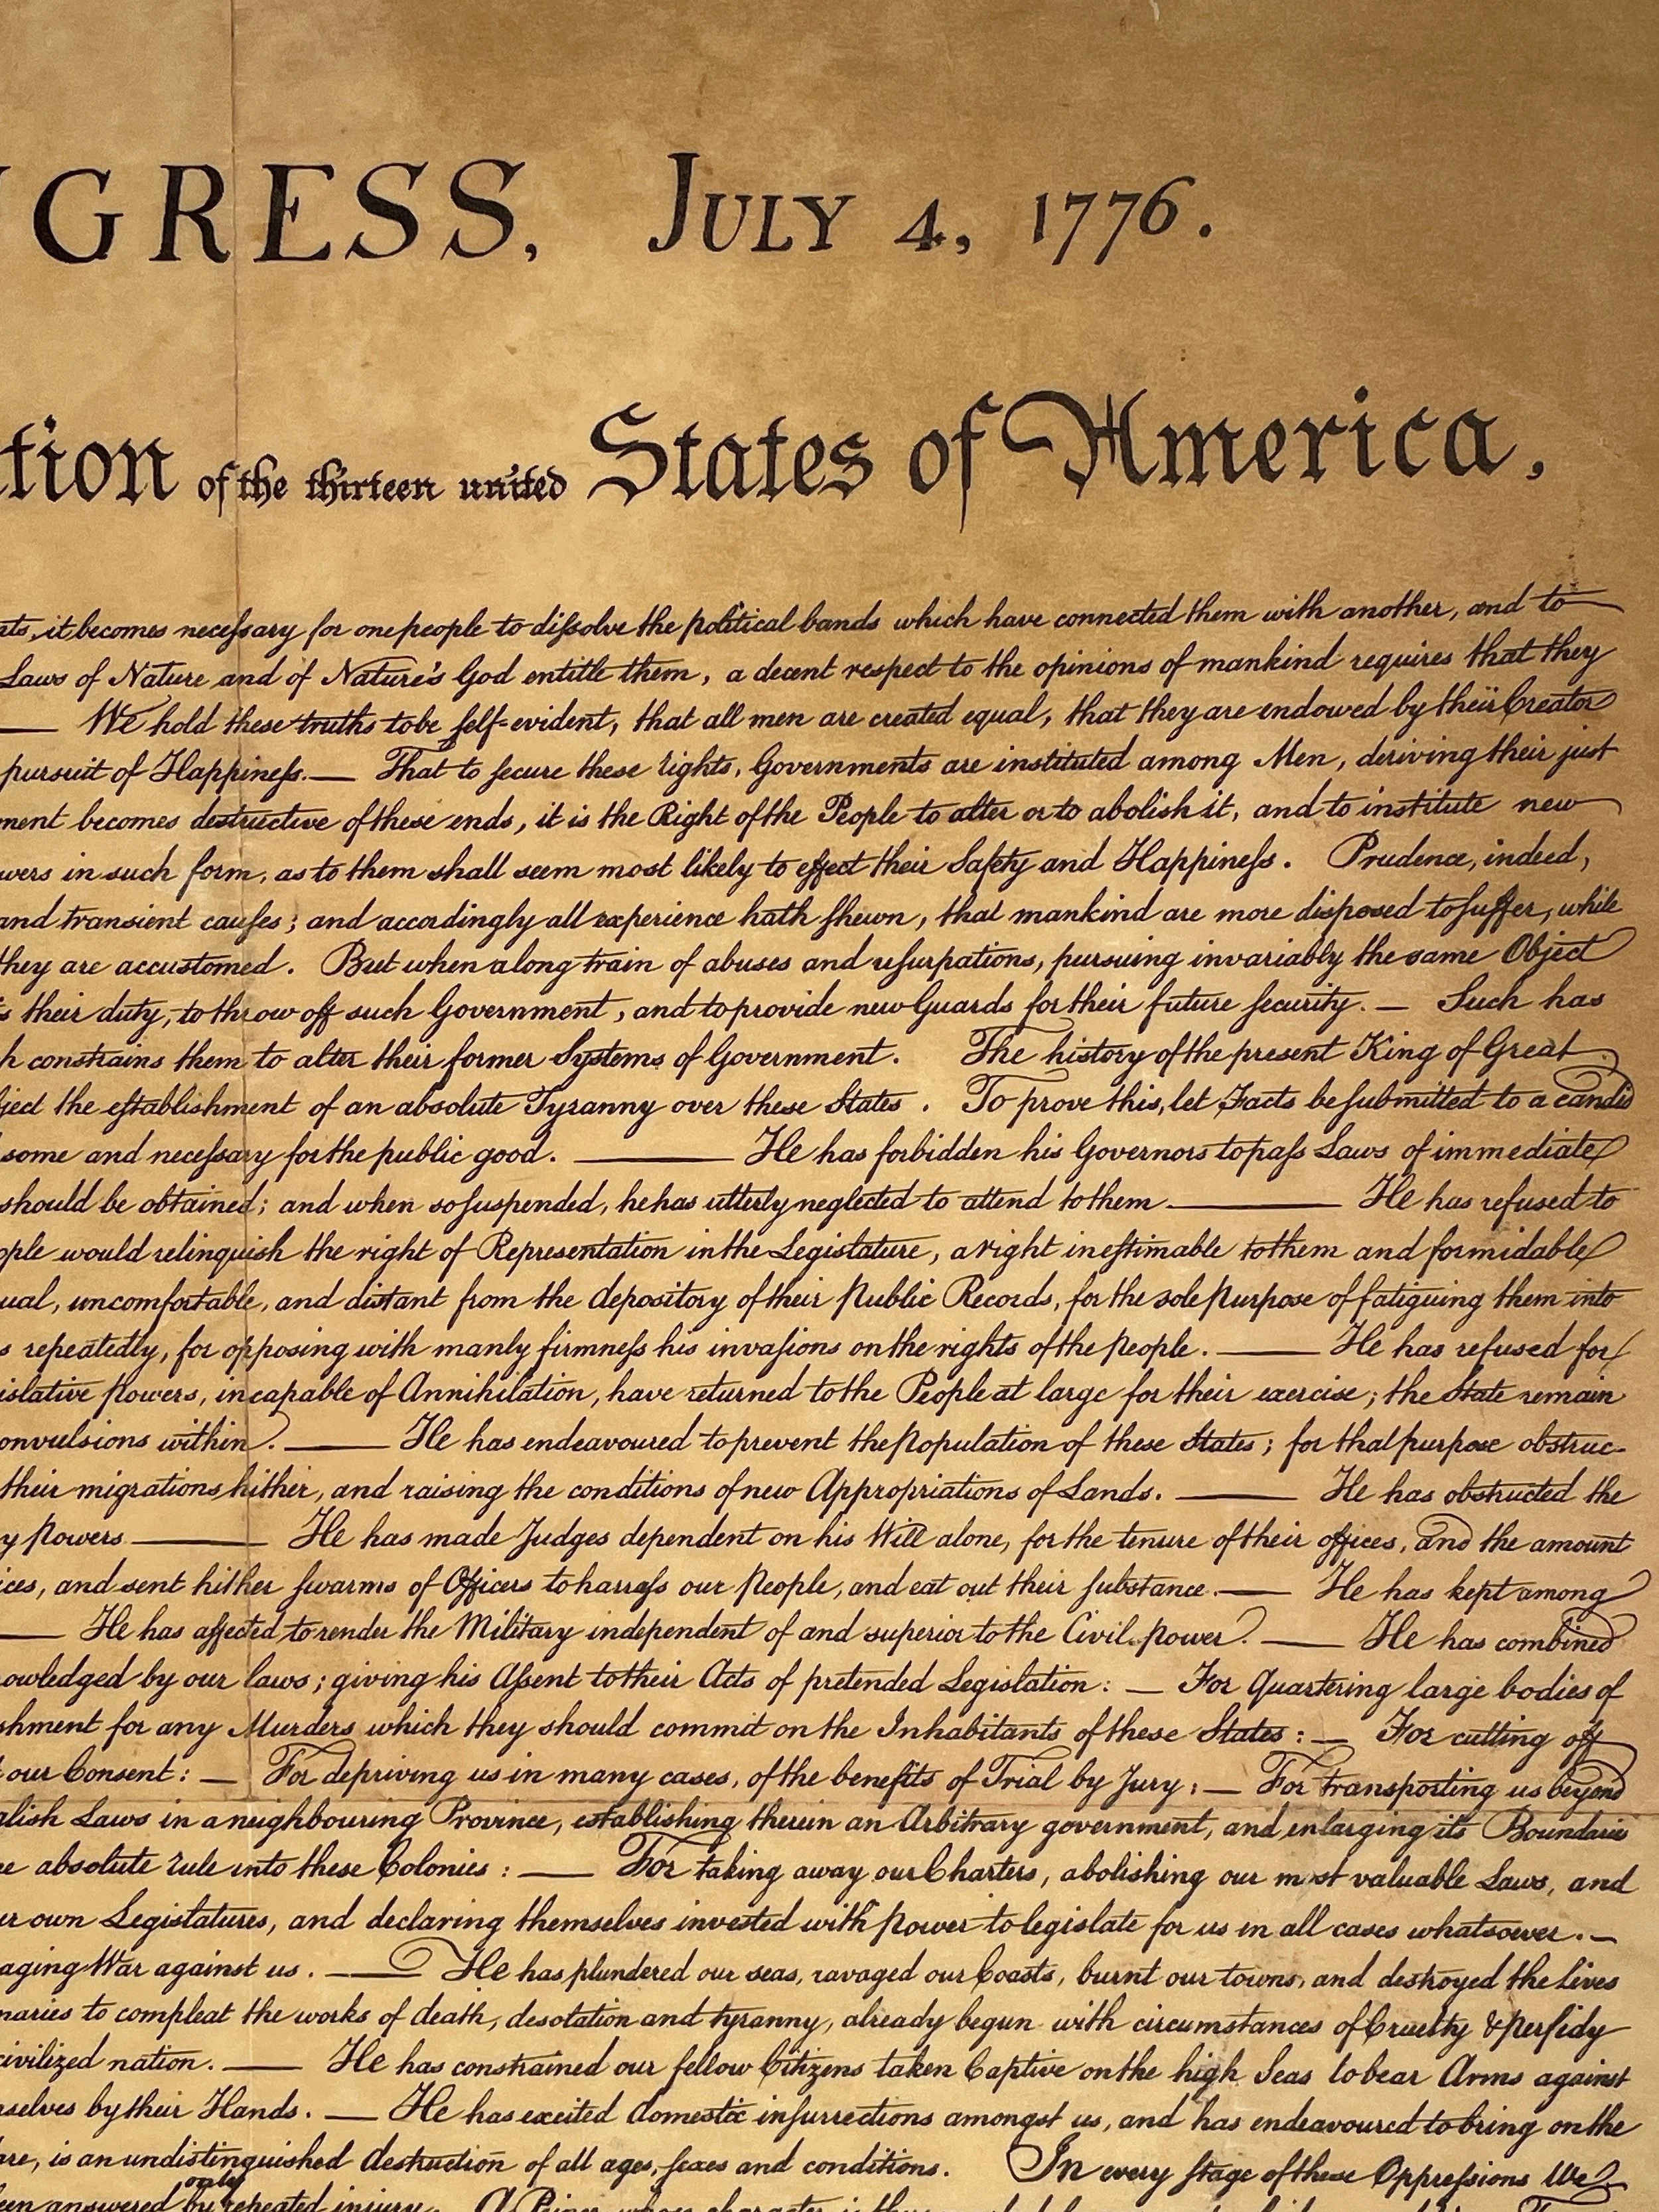 GRESS, JULY 4, 1776.
tion of the thirteen united States of America,
nts, it becomes neceſsary for one people to diſsolve the political bands which have connected them with another, and to
Laws of Nature and of Nature's God entitle them, a decent respect to the opinions of mankind requires that they
— We hold these truths to be ſelf-evident, that all men are created equal, that they are endowed by their Creator
pursuit of Happineſs.— That to ſecure these rights, Governments are instituted among Men, deriving their just
ment becomes destructive of these ends, it is the Right of the People to alter or to abolish it, and to institute new
wers in such form, as to them shall seem most likely to effect their Safety and Happineſs. Prudence, indeed,
and transient cauſes; and accordingly all experience hath ſhewn, that mankind are more disposed to ſuffer, while
they are accustomed. But when a long train of abuses and uſurpations, pursuing invariably the same Object
s their duty, to throw off such Government, and to provide new Guards for their future ſecurity.— Such has
h constrains them to alter their former Systems of Government. The history of the present King of Great
ject the eſtablishment of an absolute Tyranny over these States. To prove this, let Facts be ſubmitted to a candid
some and neceſsary for the public good. — He has forbidden his Governors to paſs Laws of immediate
should be obtained; and when so ſuspended, he has utterly neglected to attend to them.— He has refused to
ople would relinquish the right of Representation in the Legislature, a right ineſtimable to them and formidable
ual, uncomfortable, and distant from the depository of their Public Records, for the sole purpose of fatiguing them into
s repeatedly, for opposing with manly firmneſs his invaſions on the rights of the people. — He has refused for
islative powers, incapable of Annihilation, have returned to the People at large for their exercise; the State remain
onvulsions within. — He has endeavoured to prevent the population of these States; for that purpose obstruc-
their migrations hither, and raising the conditions of new Appropriations of Lands. — He has obstructed the
y powers.— He has made Judges dependent on his Will alone, for the tenure of their offices, and the amount
ices, and sent hither ſwarms of Officers to harraſs our people, and eat out their ſubstance.— He has kept among
— He has affected to render the Military independent of and superior to the Civil power. — He has combined
owledged by our laws; giving his Aſsent to their Acts of pretended Legislation: — For Quartering large bodies of
shment for any Murders which they should commit on the Inhabitants of these States: — For cutting off
our Consent: — For depriving us in many cases, of the benefits of Trial by Jury: — For transporting us beyond
glish Laws in a neighbouring Province, establishing therein an Arbitrary government, and enlarging its Boundaries
e absolute rule into these Colonies: — For taking away our Charters, abolishing our most valuable Laws, and
ur own Legislatures, and declaring themselves invested with power to legislate for us in all cases whatsoever.—
aging War against us. — He has plundered our seas, ravaged our Coasts, burnt our towns, and destroyed the Lives
naries to compleat the works of death, desolation and tyranny, already begun with circumstances of Cruelty & perfidy
civilized nation. — He has constrained our fellow Citizens taken Captive on the high Seas to bear Arms against
mselves by their Hands. — He has excited domestic inſurrections amongst us, and has endeavoured to bring on the
are, is an undistinguished destruction of all ages, ſexes and conditions. In every ſtage of these Oppreſsions We
only
een answered by repeated injury. A Prince whose character is thus